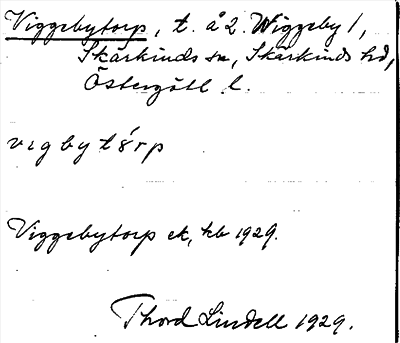 Viggebytorp, t. å 2. Wiggeby /,
Skärkinds sn, Skärkinds hd,
Östergötl. l.
vιgbytórp
Viggebytorp ek, kb 1929.
Thord Lindell 1929.